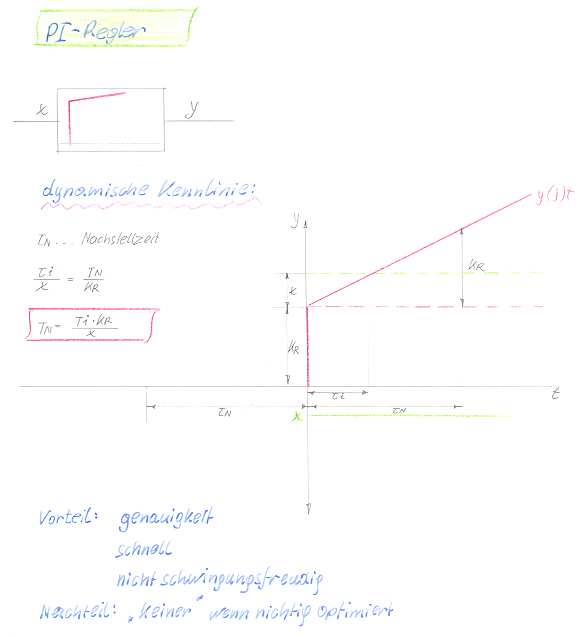 PI-Regler
x y
dynamische Kennlinie:
TN... Nachstellzeit
Ti/x = TN/KR
TN = Ti·KR/x
y
y(j)t
KR
x
KR
Ti
t
TN
TN
x
Vorteil: genauigkeit
schnell
nicht schwingungsfreudig
Nachteil: "Keiner" wenn richtig optimiert